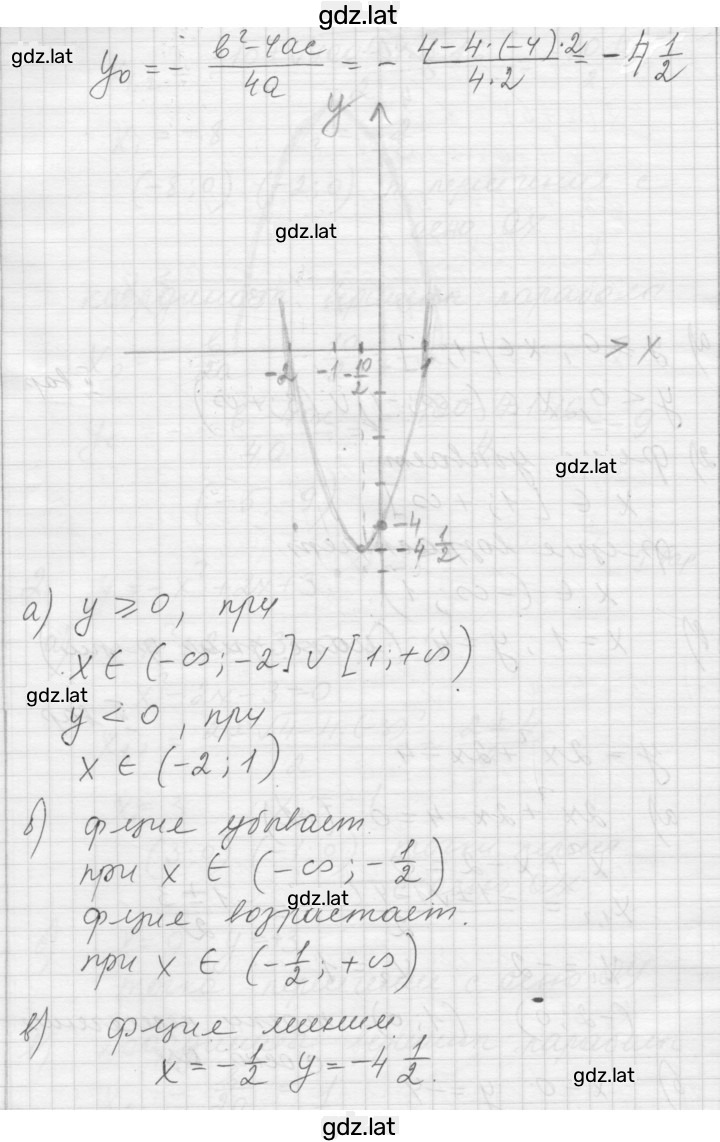 gdz.lat
gdz.lat
y₀ = - (b² - 4ac)/(4a) = - (4 - 4·(-4)·2)/(4·2) = -4 1/2
y
gdz.lat
x
-2 -1 -1/2 0 1
gdz.lat
-4
-4 1/2
а) y ⩾ 0, при
x ∈ (-∞; -2] ∪ [1; +∞)
gdz.lat
y < 0, при
x ∈ (-2; 1)
б) ф-ция убывает
при x ∈ (-∞; -1/2)
gdz.lat
ф-ция возрастает.
при x ∈ (-1/2; +∞)
в) ф-ция миним.
x = -1/2 y = -4 1/2.
gdz.lat
gdz.lat